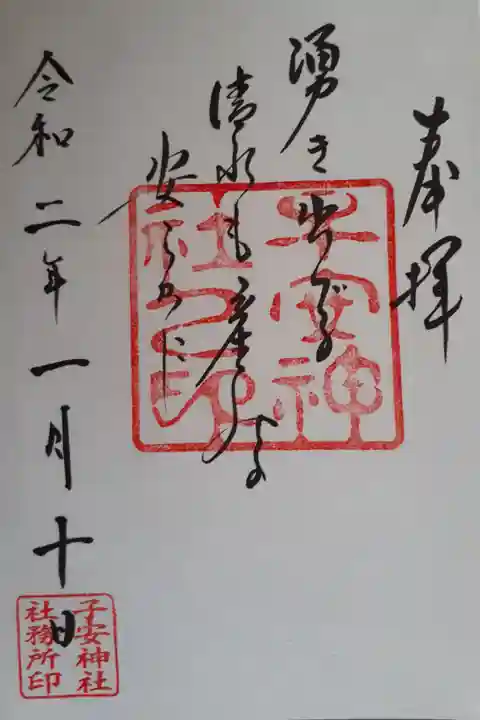 奉拝
湧き出でる
清水も産
安らかに
子安神社印
令和二年一月十日
子安神社
社務所印